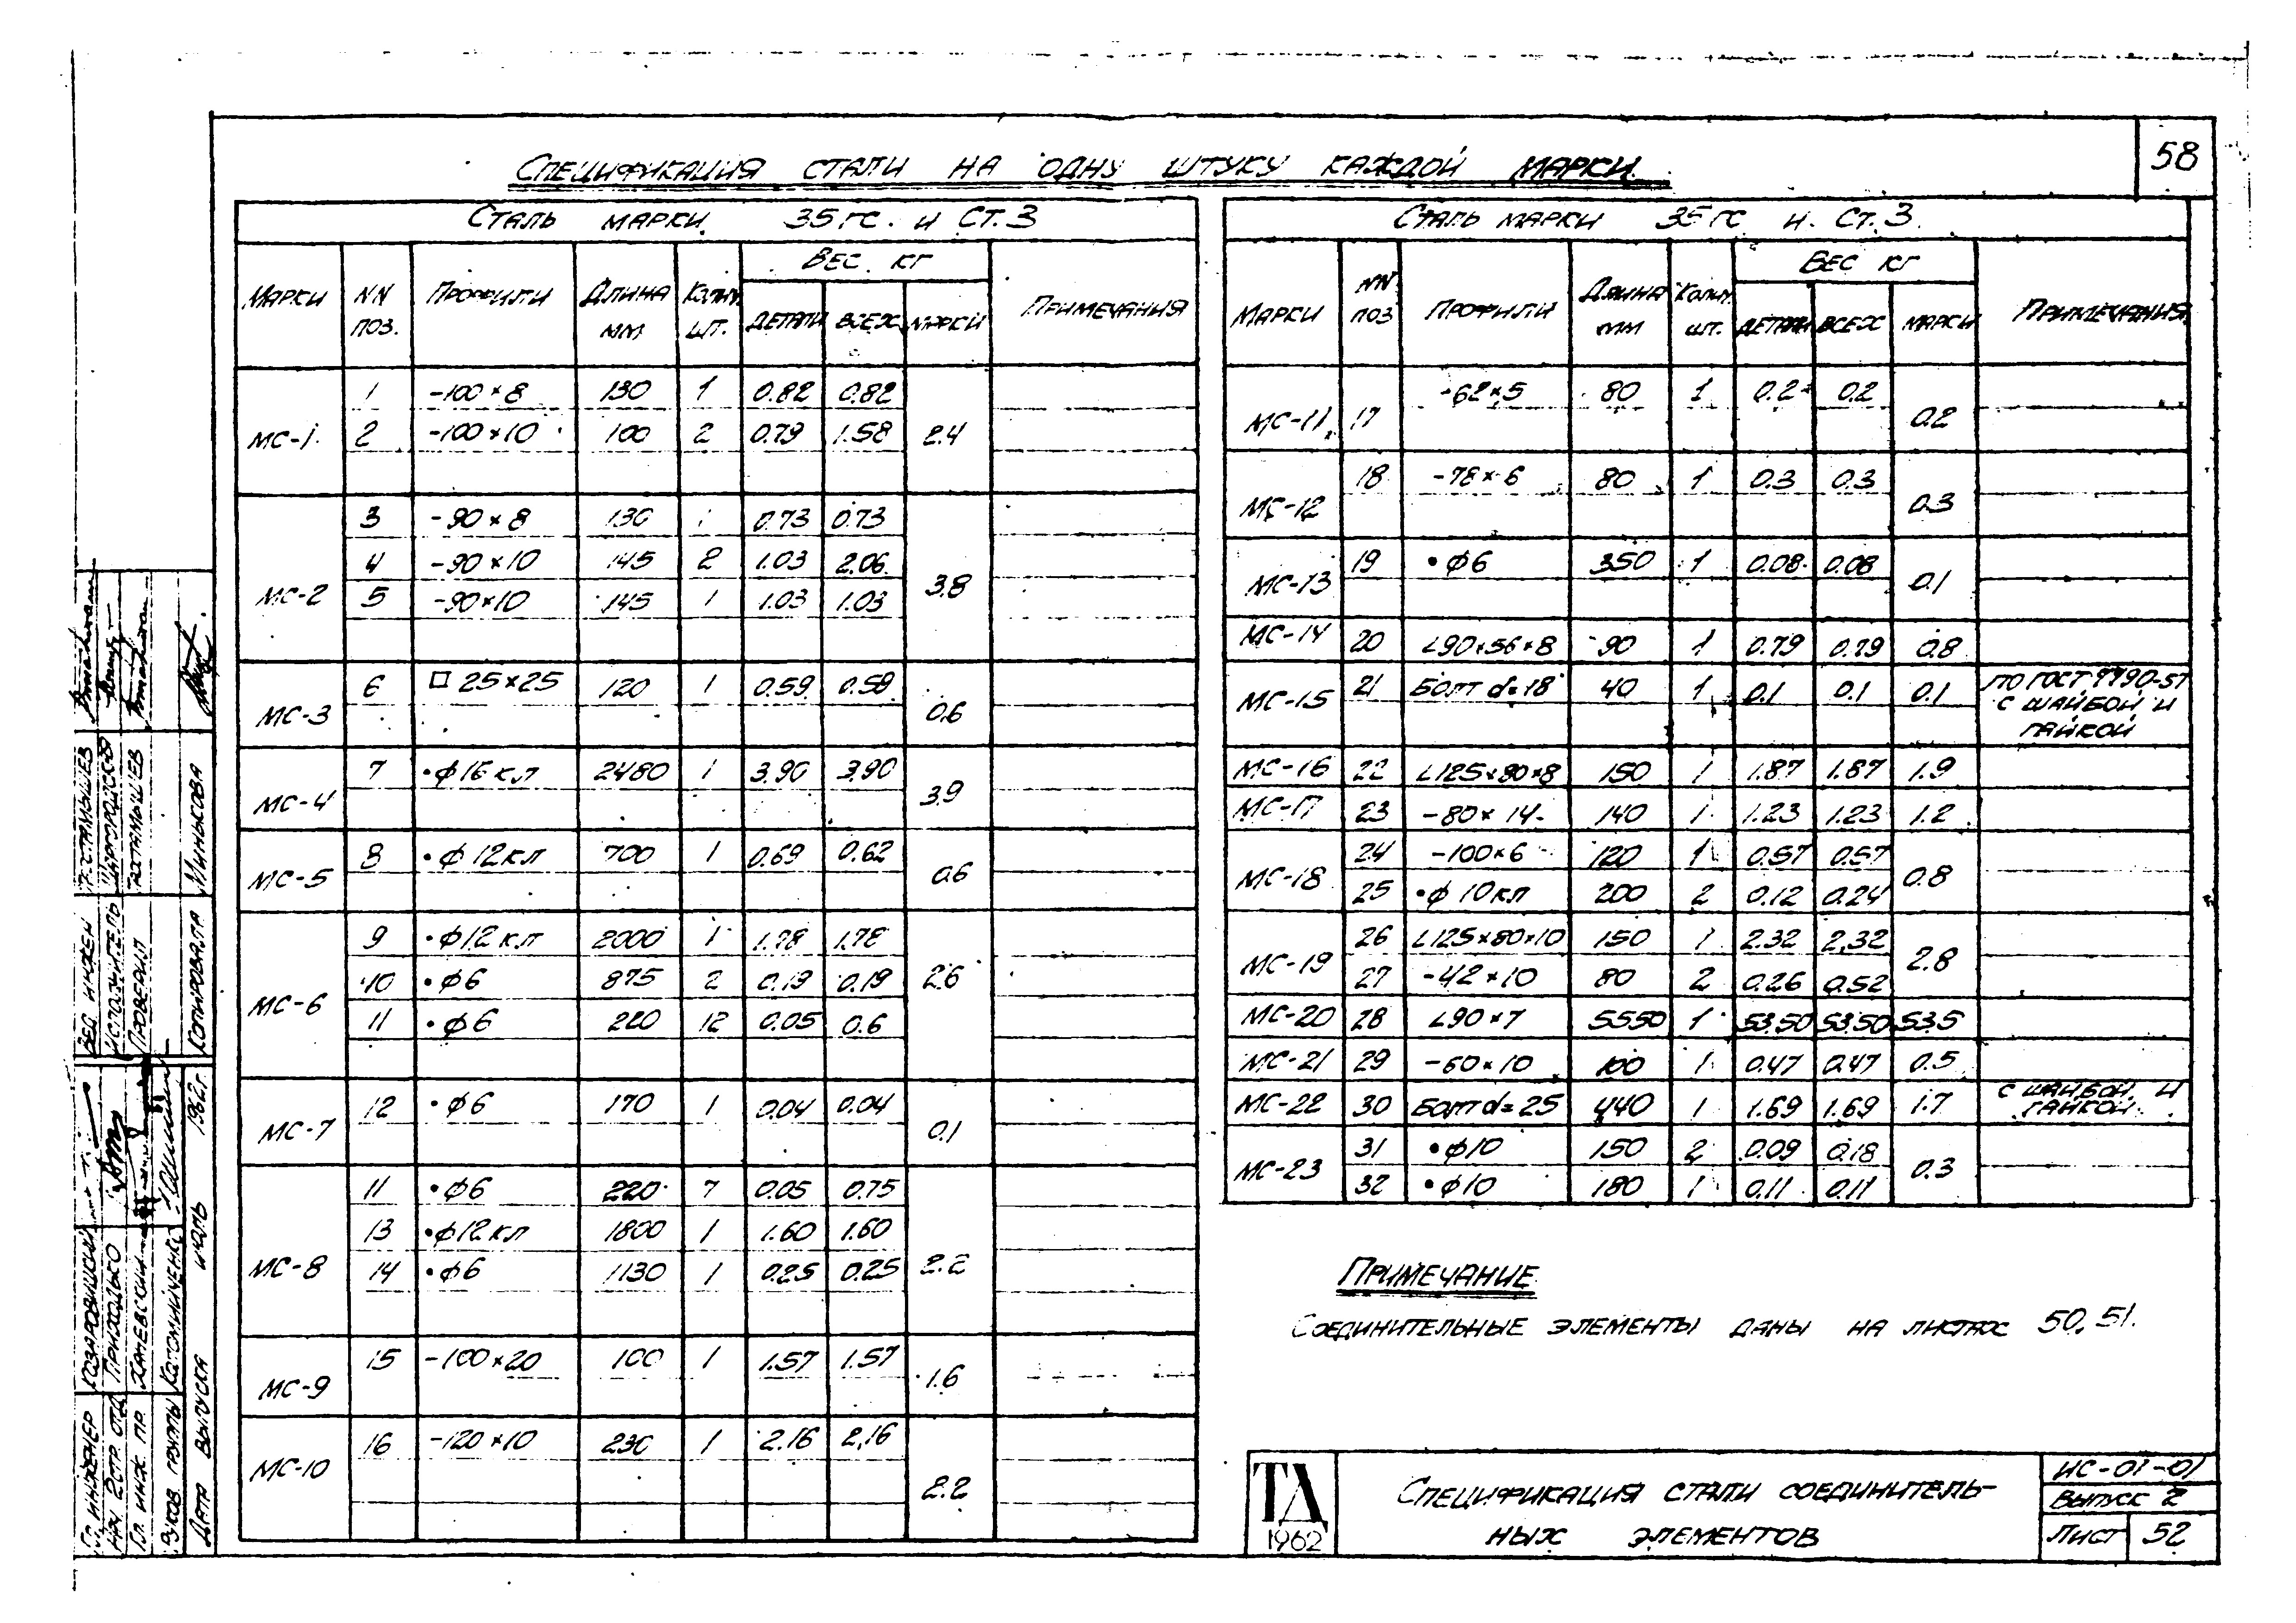 58
Спецификация стали на одну штуку каждой марки
Сталь марки 35ГС. и Ст.3
Марки NN поз. Профили Длина мм Колич. шт. Вес кг Примечания
детали всех марки
МС-1 2.4
1 -100×8 130 1 0.82 0.82
2 -100×10 100 2 0.79 1.58
МС-2 3.8
3 -90×8 130 1 0.73 0.73
4 -90×10 145 2 1.03 2.06
5 -90×10 145 1 1.03 1.03
МС-3 0.6
6 □ 25×25 120 1 0.59 0.59
МС-4 3.9
7 •ф16кл 2480 1 3.90 3.90
МС-5 0.6
8 •ф12кл 700 1 0.69 0.62
МС-6 2.6
9 •ф12кл 2000 1 1.78 1.78
10 •ф6 875 2 0.19 0.19
11 •ф6 220 12 0.05 0.6
МС-7 0.1
12 •ф6 170 1 0.04 0.04
МС-8 2.2
11 •ф6 220 7 0.05 0.75
13 •ф12кл 1800 1 1.60 1.60
14 •ф6 1130 1 0.25 0.25
МС-9 1.6
15 -100×20 100 1 1.57 1.57
МС-10 2.2
16 -120×10 230 1 2.16 2,16
Сталь марки 35ГС и. Ст.3.
Марки NN поз Профили Длина мм Колич. шт. Вес кг Примечания
детали всех марки
МС-11 17 -62×5 80 1 0.2 0.2 0.2
МС-12 18 -78×6 80 1 0.3 0.3 0.3
МС-13 19 •ф6 350 1 0.08 0.08 0.1
МС-14 20 L90×56×8 90 1 0.79 0.79 0.8
МС-15 21 Болт d=18 40 1 0.1 0.1 0.1 по ГОСТ 7790-57
с шайбой и
гайкой
МС-16 22 L125×80×8 150 1 1.87 1.87 1.9
МС-17 23 -80×14 140 1 1.23 1.23 1.2
МС-18 0.8
24 -100×6 120 1 0.57 0.57
25 •ф10кл 200 2 0.12 0.24
МС-19 2.8
26 L125×80×10 150 1 2.32 2,32
27 -42×10 80 2 0.26 0.52
МС-20 28 L90×7 5550 1 53.50 53.50 53.5
МС-21 29 -60×10 100 1 0.47 0.47 0.5
МС-22 30 Болт d=25 440 1 1.69 1.69 1.7 с шайбой и
гайкой
МС-23 0.3
31 •ф10 150 2 0.09 0.18
32 •ф10 180 1 0.11 0.11
Примечание
Соединительные элементы даны на листах 50, 51.
ТД
1962
Спецификация стали соединитель-
ных элементов
ИС-01-01
Выпуск 2
Лист 52
Вед инжен
Исполнитель
Проверил
Копировала Минькова
Гл. инженер
Нач 2 стр. отд Приходько
Гл. инж. пр. Ханевский
Руков. группы Коломийченко
Дата выпуска июль 1962г.